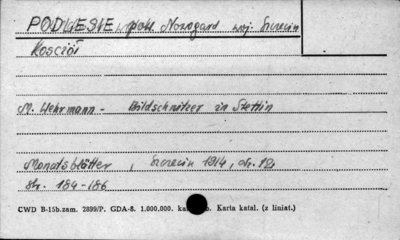 PODLESIE, pow. Nowogard woj. Szczecin
Kościół
M. Wehrmann - Bildschnitzer in Stettin
Monatsblätter, Szczecin 1914, nr. 12,
str. 184-186
CWD B-15b.zam. 2899/P. GDA-8. 1.000.000. Karta katal. (z liniat.)